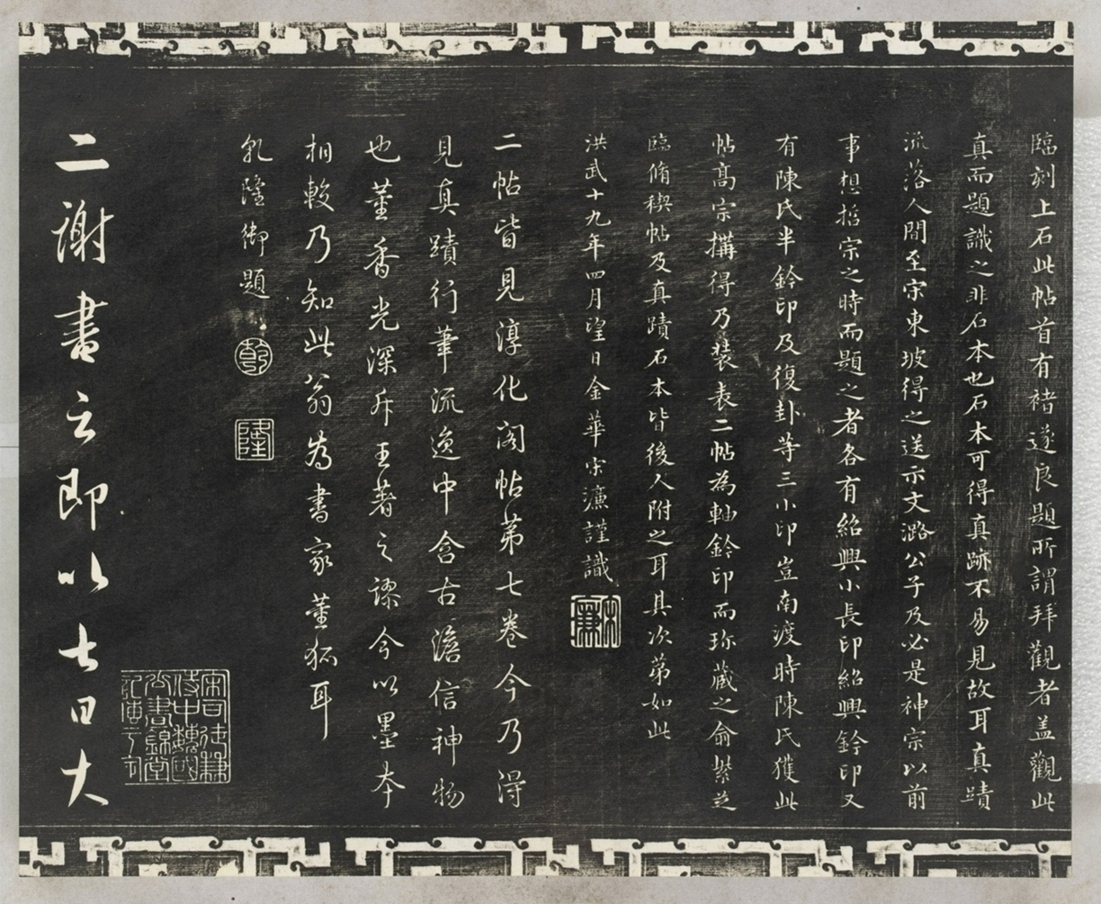 臨刻上石此帖首有褚遂良題所謂拜觀者盖觀此
真而題識之非石本也石本可得真跡不易見故耳真蹟
流落人間至宋東坡得之送示文潞公子及必是神宗以前
事想哲宗之時而題之者各有紹興小長印紹興鈐印又
有陳氏半鈐印及復卦等三小印豈南渡時陳氏獲此
帖高宗搆得乃裝表二帖為軸鈐印而珍藏之俞紫芝
臨脩稧帖及真蹟石本皆後人附之耳其次第如此
洪武十九年四月望日金華宋濂謹識
宋濂
二帖皆見淳化閣帖第七卷今乃得
見真蹟行筆流逸中含古澹信神物
也董香光深斥王著之謬今以墨本
相較乃知此翁為書家董狐耳
乾隆御題
乾
隆
二謝書云即以七日大